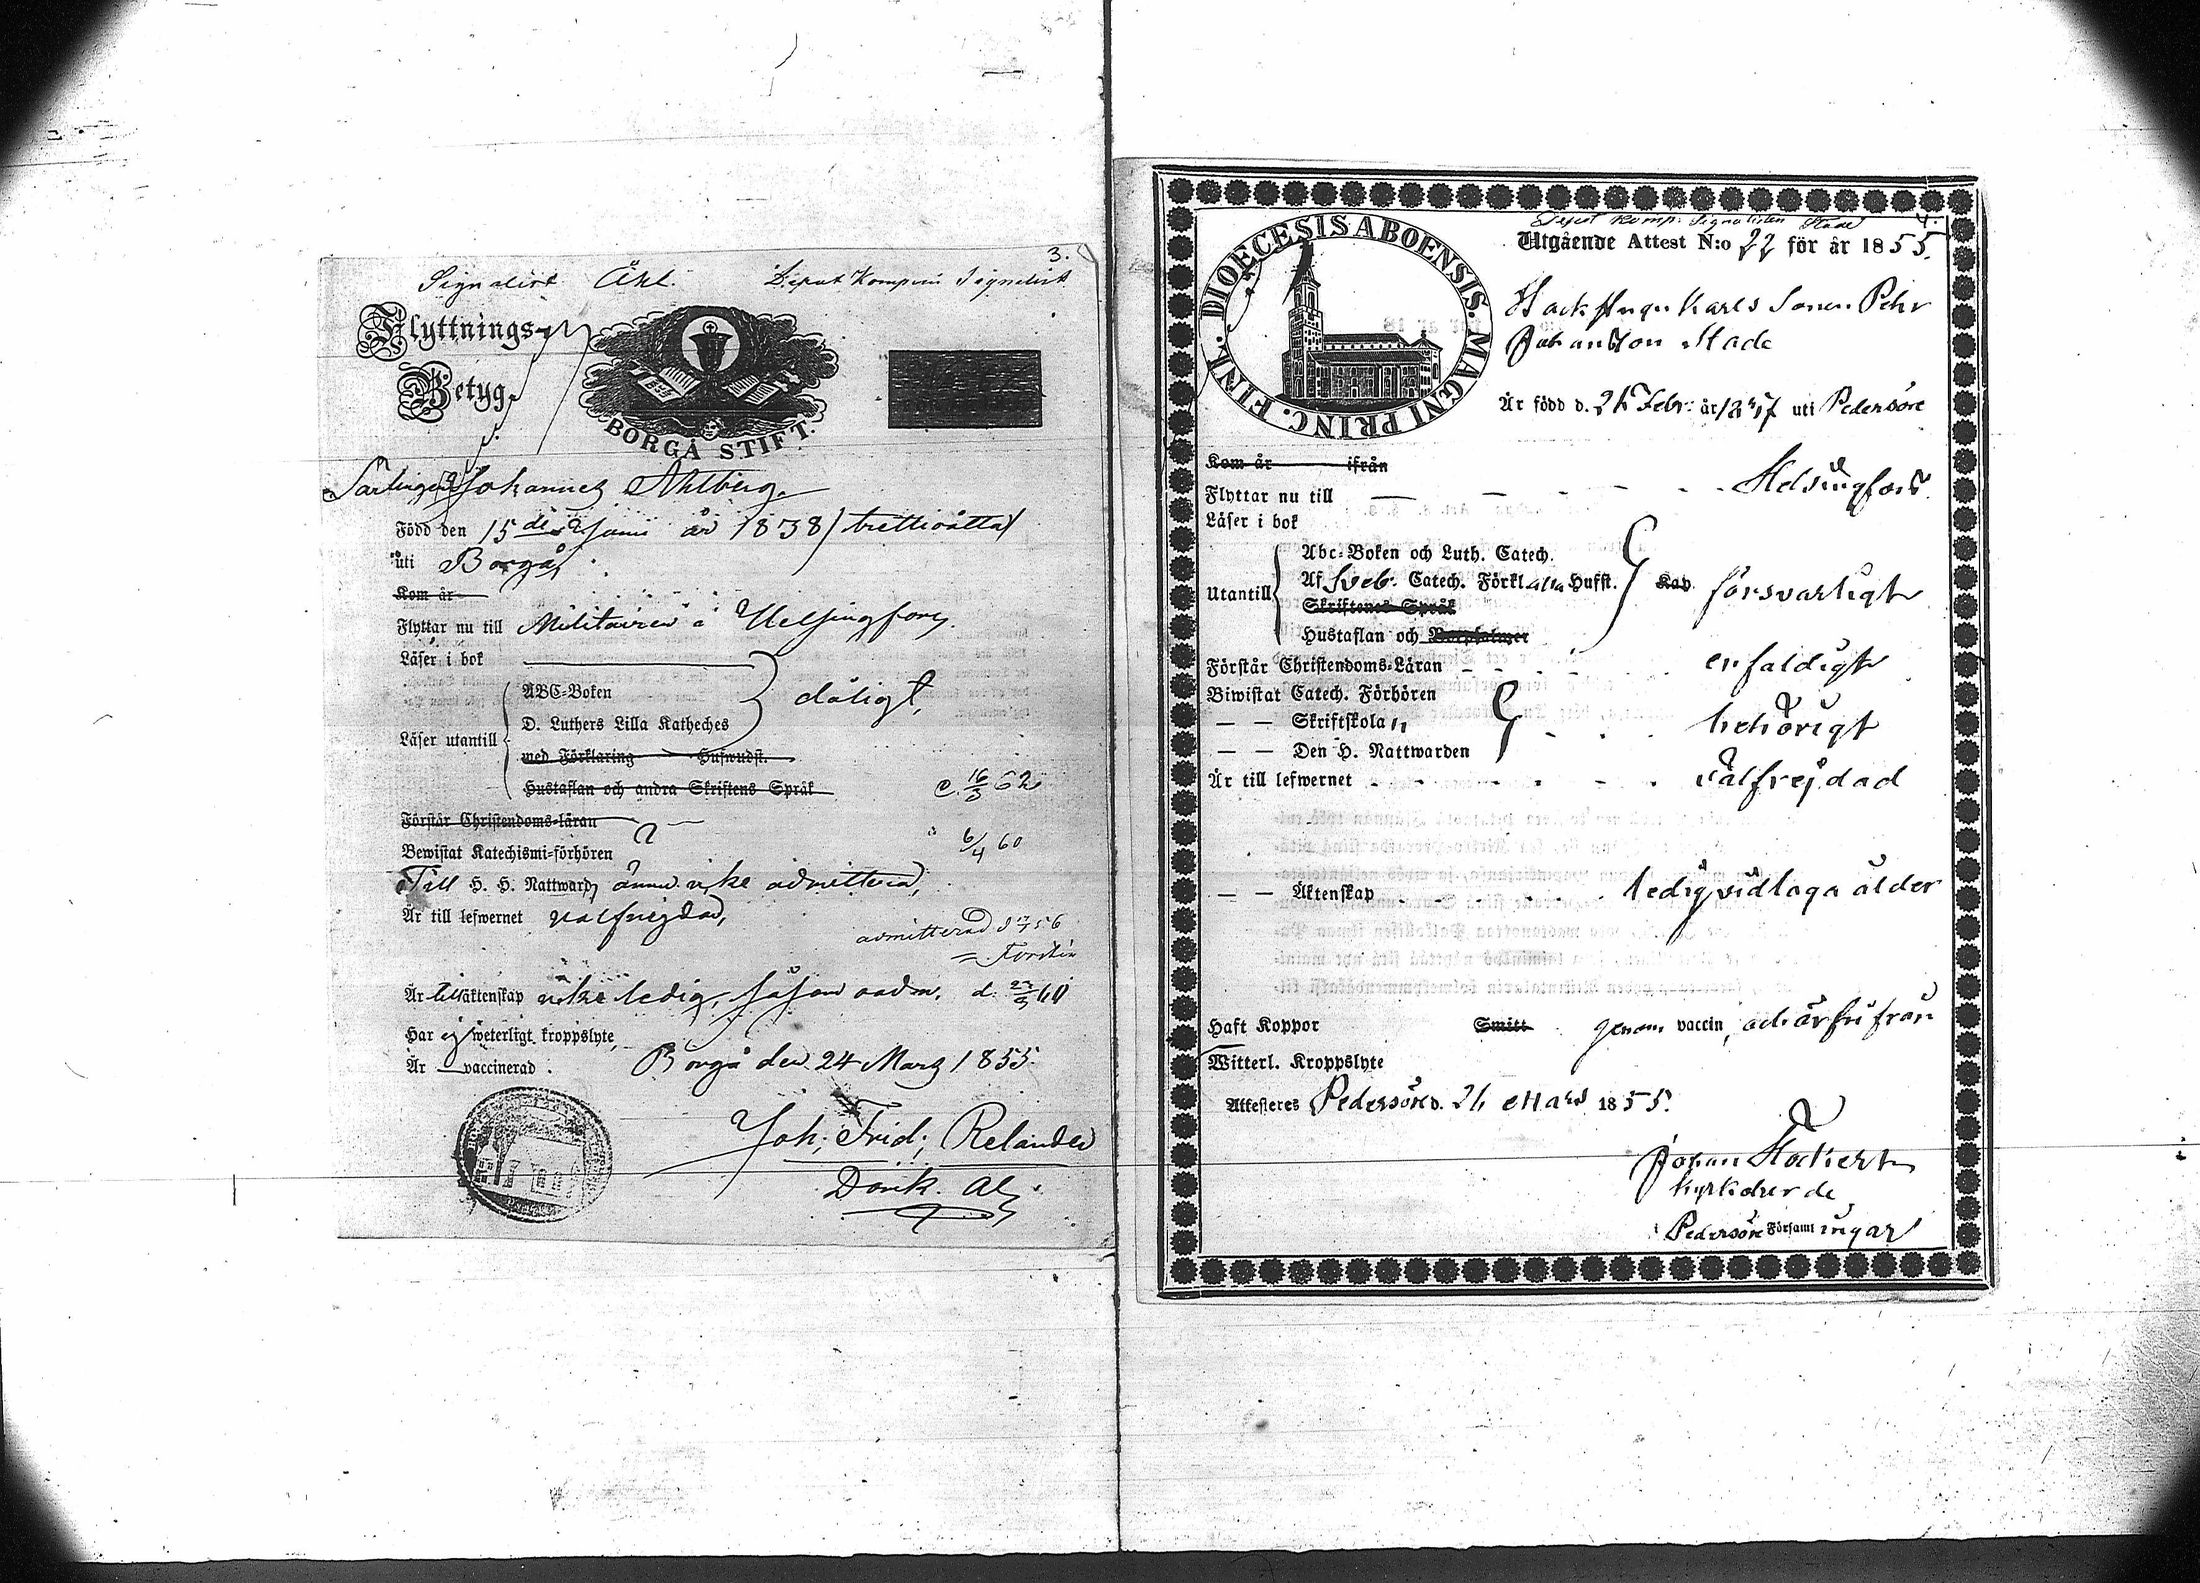 3.
Signalist Åhl. Depot Kompni Signalist
Flyttnings-
Betyg.
BORGÅ STIFT.
Johannes Ahlberg.
Född den 15 de Juni år 1838 / trettioåtta /
uti Borgå,
Kom år
Flyttar nu till Militairen i Helsingfors.
Läser i bok
ABC-Boken
dåligt,
D. Luthers Lilla Katheches
Läser utantill
med Förklaring Hufwudst.
Hustaflan och andra Skriftens Språk
C. 16/3 62
Förstår Christendoms-läran
Bewistat Katechismi-förhören
6/4 60
Till H. H. Nattward, ännu icke admitterad,
Är till lefwernet välfrejdad,
admitterad
Är till äktenskap icke ledig, såsom
Har ej weterligt kroppslyte,
Är vaccinerad.
Borgå den 24 Mars 1855.
Joh: Frid: Relander
4.
Depot Komp: Signalisten Stade
Utgående Attest N:o 22 för år 1855.
DIOECESIS ABOENSIS. MAGNI PRINC. FINL.
Karls Sonen Pehr
Johansson Stade
Är född d. Febr: år uti Pedersöre
Kom år ifrån
Flyttar nu till Helsingfors.
Läser i bok
Abc-Boken och Luth. Catech.
Utantill
Af Sveb. Catech. Förkl. alla Hufst.
Kap
försvarligt
Skriftenes Språk
Hustaflan och Botpsalmer
Förstår Christendoms-Läran enfaldigt
Biwistat Catech. Förhören
— — Skriftskola
behörigt
— — Den H. Nattwarden
Är till lefwernet välfrejdad
— — Äktenskap ledig vid laga ålder
Haft Koppor Smitt genom vaccin, och är fri från
Witterl. Kroppslyte
Attesteres Pedersöre d. Mars 1855.
Johan
Kyrkoherde
i Pedersöre Församlingar